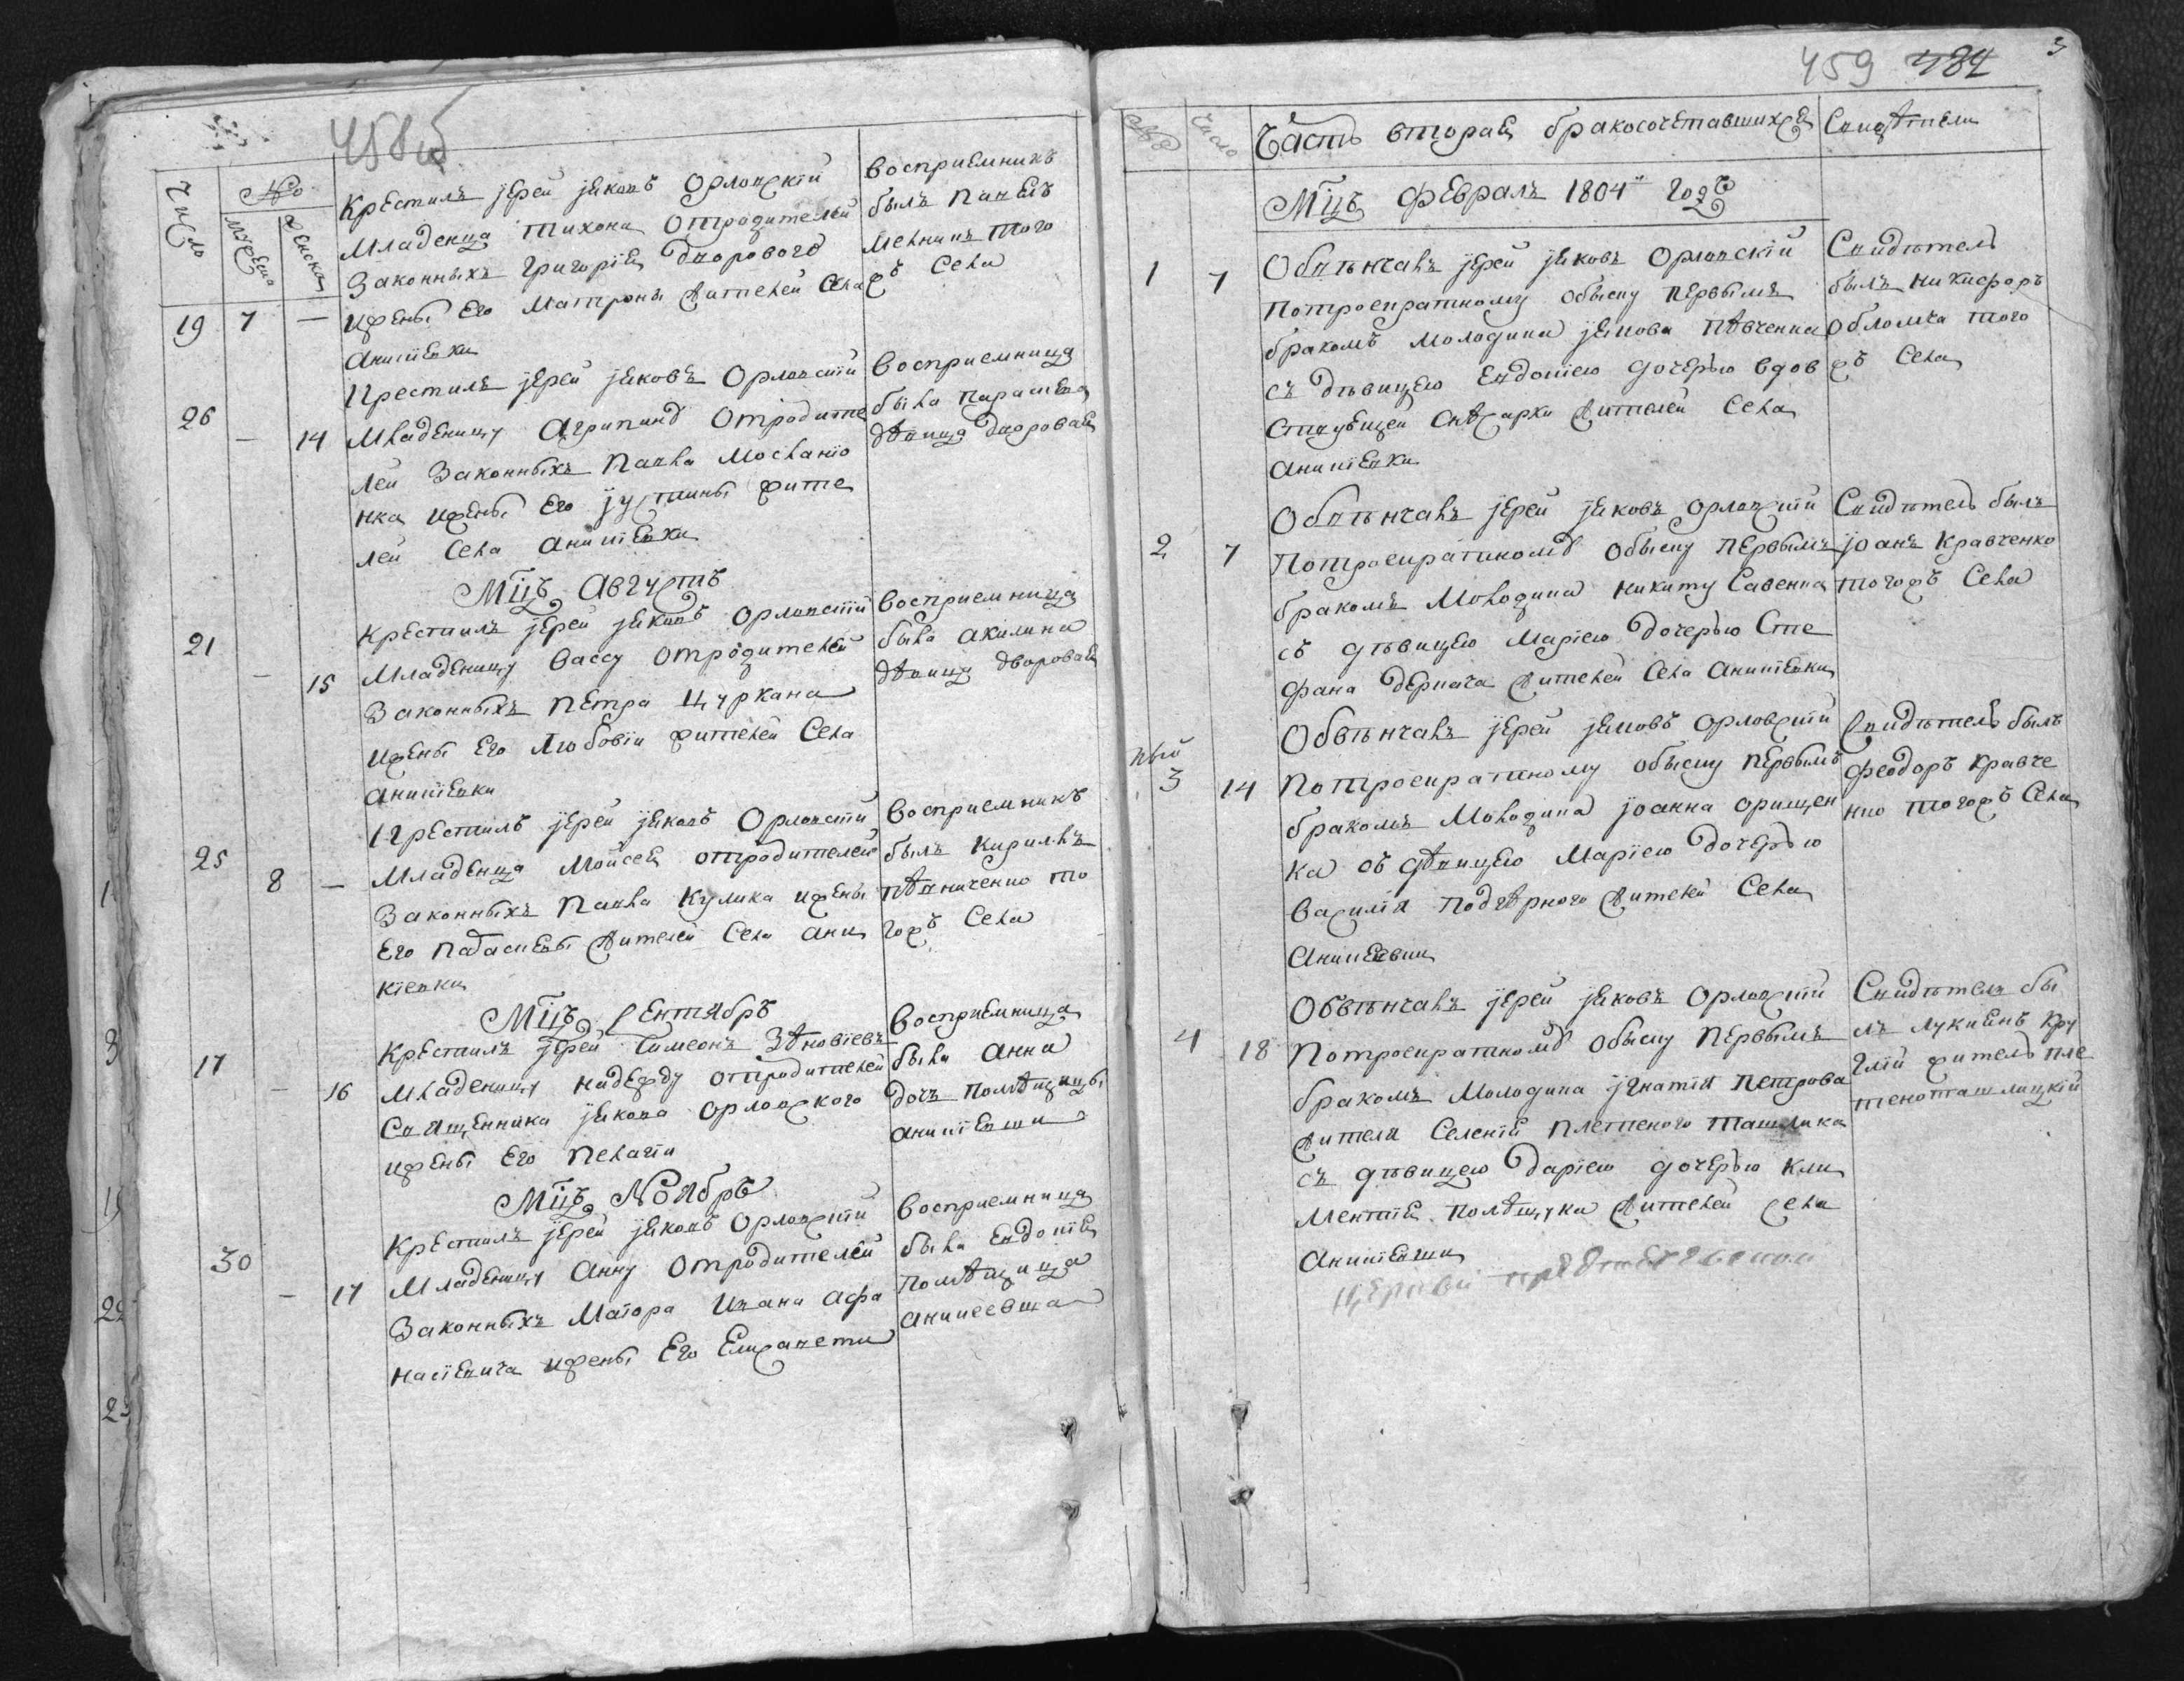 458об
Число
№
Мужеска
Женска
Крестилъ іерей іяковъ Орловскій
Младенца Тихона отродителей
Законныхъ Григорія Дворового
ижены Его Матроны жителей Села
Аникіевки
19 7 —
восприемникъ
былъ Павелъ
Мелникъ того
жъ Села
Крестилъ іерей іяковъ Орловскій
26 — 14 Младеницу Агрипину Отродите
лей Законныхъ Павла
нка ижены Его іустины жите
лей Села Аникіевки
Восприемница
была Параскева
дѣвица дворовая
Мц҃ъ Августъ
Крестилъ іерей іяковъ Орловскій
21 — 15 Младеницу Вассу отродителей
Законныхъ Петра Цуркана
ижены Его Любовіи жителей Села
Аникіевки
Восприемница
была Акилина
дѣвица дворовая
Крестилъ іерей іяковъ Орловскій
25 8 — Младенца Мойсея отродителей
Законныхъ Павла Кулика ижены
Его жителей Села Ани
кіевки
Восприемникъ
былъ Кирилъ
пѣвниченко то
гожъ Села
Мц҃ъ Сентябръ
Крестилъ іерей Симеонъ Зѣновіевъ
17 — 16 Младеницу Надежду отродителей
Священника іякова Орловского
ижены Его Пелагіи
Восприемница
была Анна
дочъ помѣщицы
Аникіевши
Мц҃ъ Ноябръ
Крестилъ іерей іяковъ Орловскій
30 — 17 Младеницу Анну Отродителей
Законныхъ Маіора Ивана Афа
насіевича ижены Его Елисавети
Восприемница
была Евдокія
помѣщица
Аникеевша
459 484
3
№
Число
Часть вторая бракосочетавшихся
Свидѣтели
Мц҃ъ Февралъ 1804 года
1 7 Обвѣнчалъ іерей іяковъ Орловскій
потроекратному обыску первымъ
бракомъ Молодика іякова Пѣвченка
съ дѣвицею Евдокіею дочерью вдов
ствующей жителей Села
Аникіевки
Свидѣтель
былъ Никифоръ
Обломка того
жъ Села
2 7 Обвѣнчалъ іерей іяковъ Орловскій
Потроекратному обыску Первымъ
бракомъ Молодика Никиту Савенка
съ дѣвицею Маріею дочерью Сте
фана Деркача жителей Села Аникіевки
Свидѣтель былъ
іоанъ Кравченко
тогожъ Села
3 14 Обвѣнчалъ іерей іяковъ Орловскій
Потроекратному обыску первымъ
бракомъ Молодика іоанна Орищен
ка съ дѣвицею Маріею дочерью
Василія Подгѣрного жителей Села
Аникіевки
Свидѣтель былъ
Феодоръ Кравче
нко тогожъ Села
4 18 Обвѣнчалъ іерей іяковъ Орловскій
Потроекратному обыску Первымъ
бракомъ Молодика ігнатія Петрова
жителя Селенія Плетеного Ташлика
съ дѣвицею Даріею дочерью Кли
ментія Полѣщука жителей Села
Аникіевки
Свидѣтелъ бы
лъ Лукиянъ Кру
глій жителъ пле
теноташлицкій